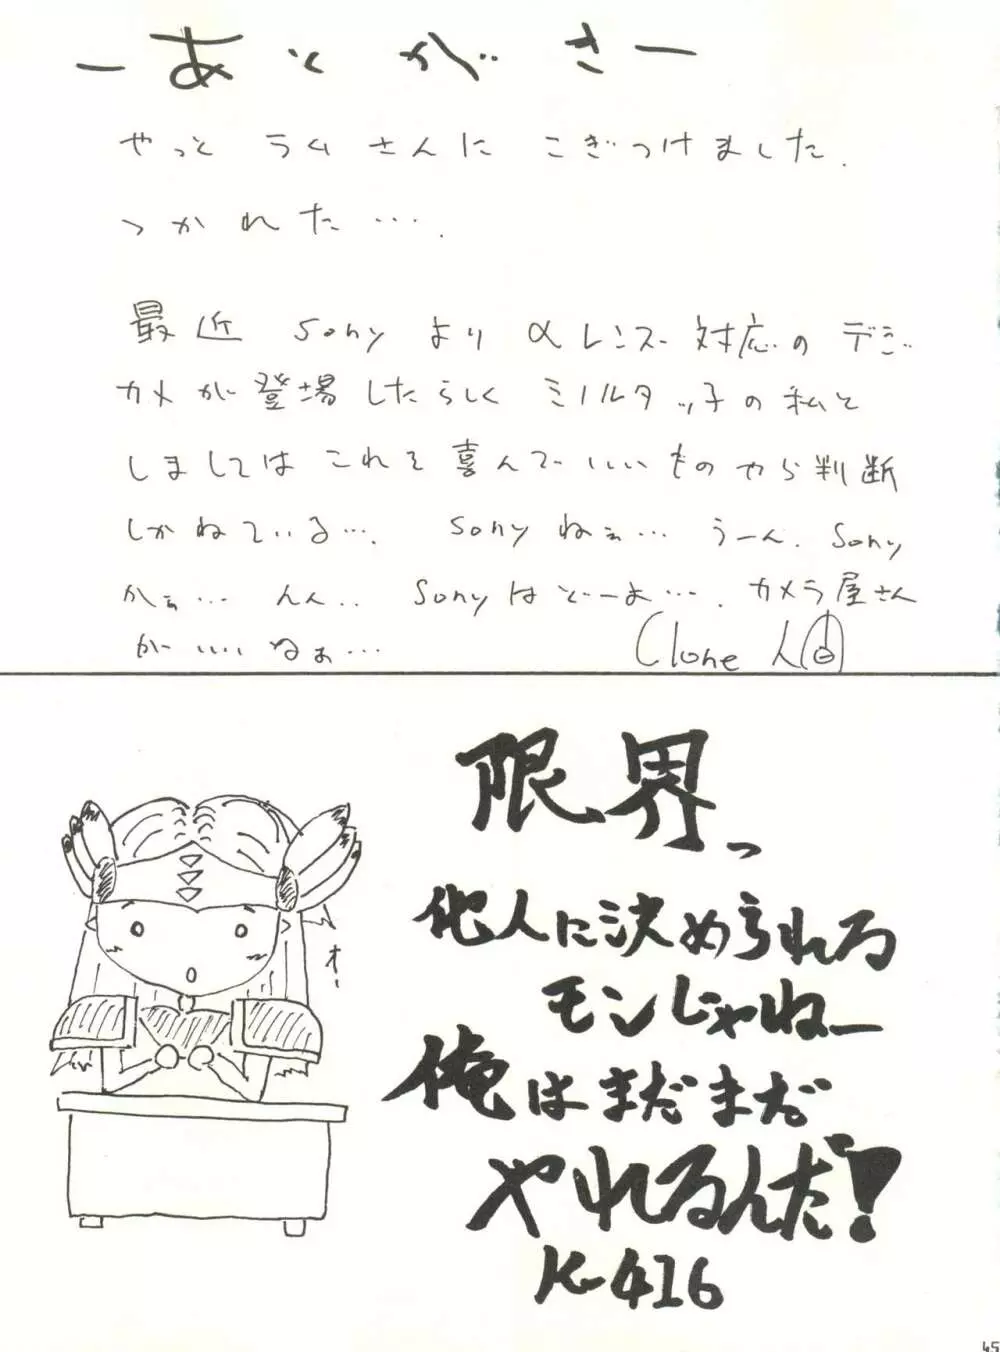 ーあとがきー
やっと ラムさんに こぎつけました.
つかれた….
最近 Sonyより αレンズ対応のデジ
カメが登場したらしく ミノルタッ子の私と
しましては これを喜んでいいいものやら判断
しかねている…. Sonyねぇ… うーん. Sony
かぁ… んん.. Sonyはどーよ…. カメラ屋さん
がいいいねぉ…
Clone 人間
限界っ
他人に決められる
モンじゃねー
俺はまだまだ
やれるんだ!
K-416
オー
45